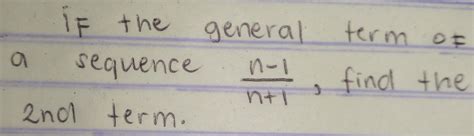 iF the general term oF
a sequence n-1/n+1, find the
2nd term.